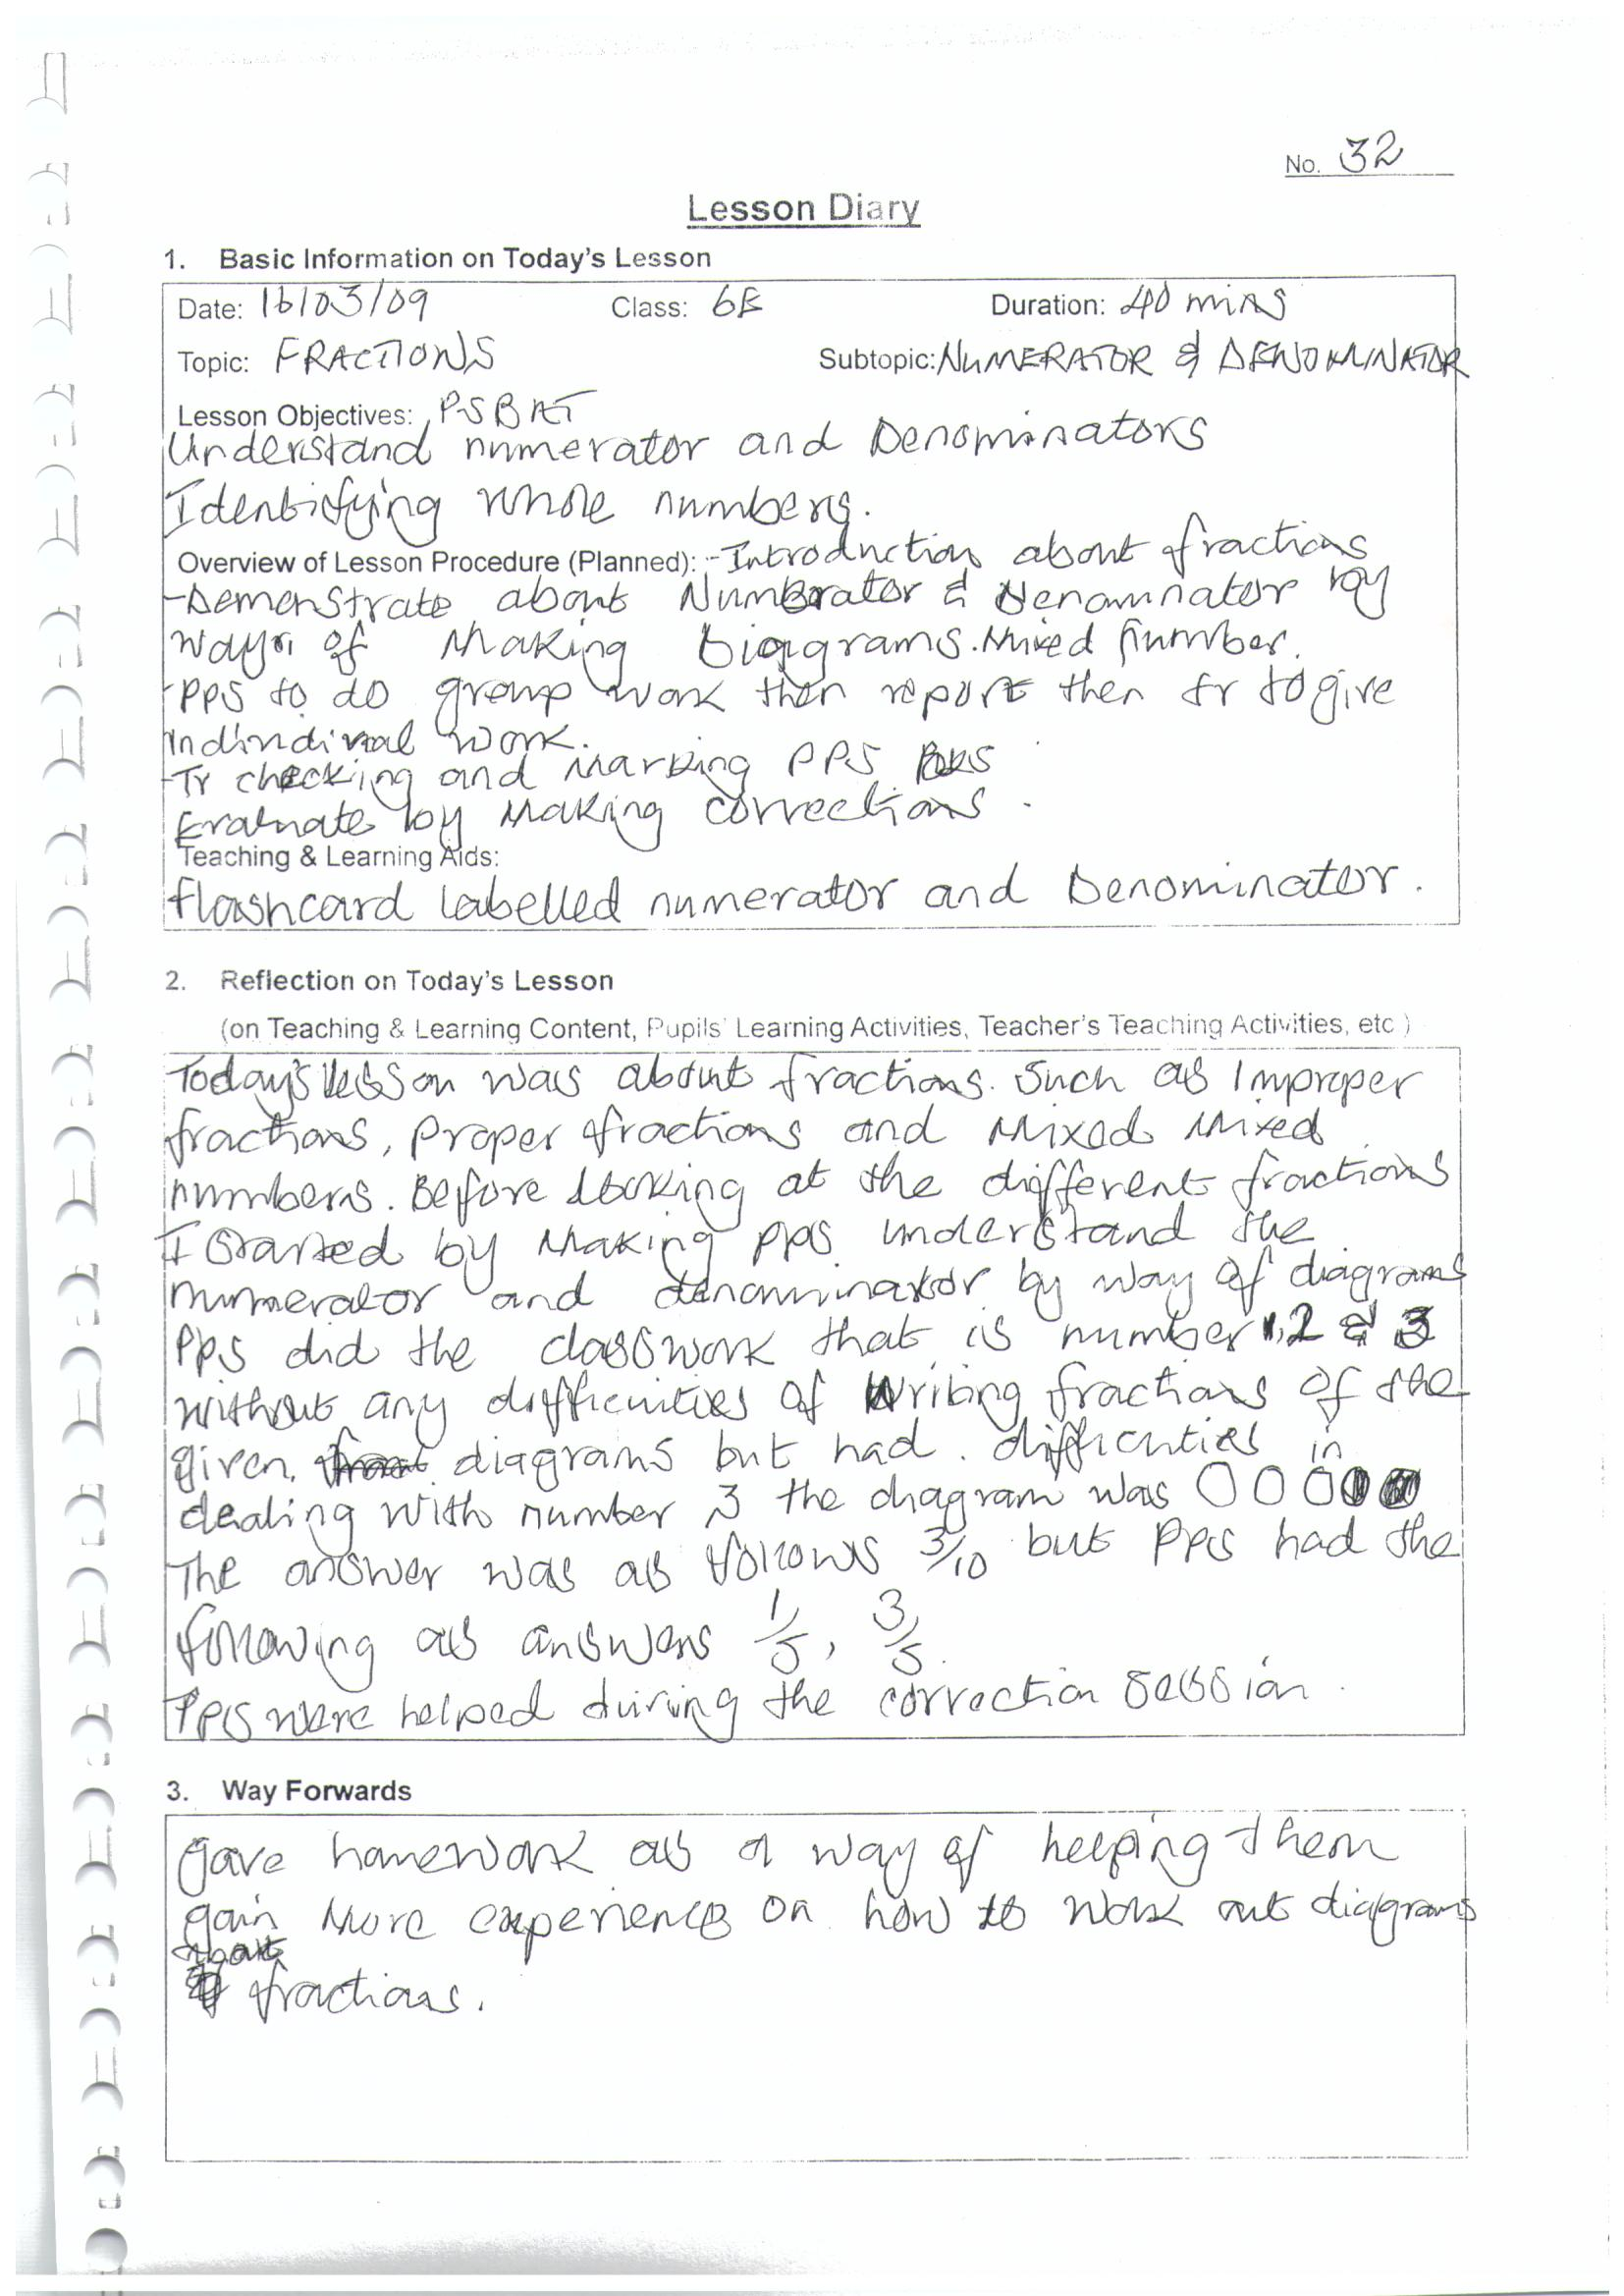 No. 32
Lesson Diary
1. Basic Information on Today's Lesson
Date: 16/03/09 Class: 6E Duration: 40 mins
Topic: FRACTIONS Subtopic: NUMERATOR & DENOMINATOR
Lesson Objectives: PSBAT
Understand numerator and Denominators
Identifying whole numbers.
Overview of Lesson Procedure (Planned): - Introduction about fractions
- Demonstrate about Numerator & Denominator by
ways of Making Diagrams. Mixed number.
- PPS to do group work then report then tr to give
individual work.
- Tr checking and Marking PPS BKS
Evaluate by Making corrections.
Teaching & Learning Aids:
flashcard labelled numerator and Denominator.
2. Reflection on Today's Lesson
(on Teaching & Learning Content, Pupils' Learning Activities, Teacher's Teaching Activities, etc.)
Today's lesson was about fractions. Such as Improper
fractions, Proper fractions and Mixed Mixed
numbers. Before looking at the different fractions
I started by Making pps understand the
numerator and denominator by way of diagrams
PPs did the classwork that is number 1,2 & 3
without any difficulties of Writing fractions of the
given diagrams but had difficulties in
dealing with number 3 the diagram was
The answer was as follows 3/10 but PPs had the
following as answers 1/5, 3/5.
PPs were helped during the correction session.
3. Way Forwards
Gave homework as a way of helping them
gain More experience on how to work out diagrams
about
fractions.